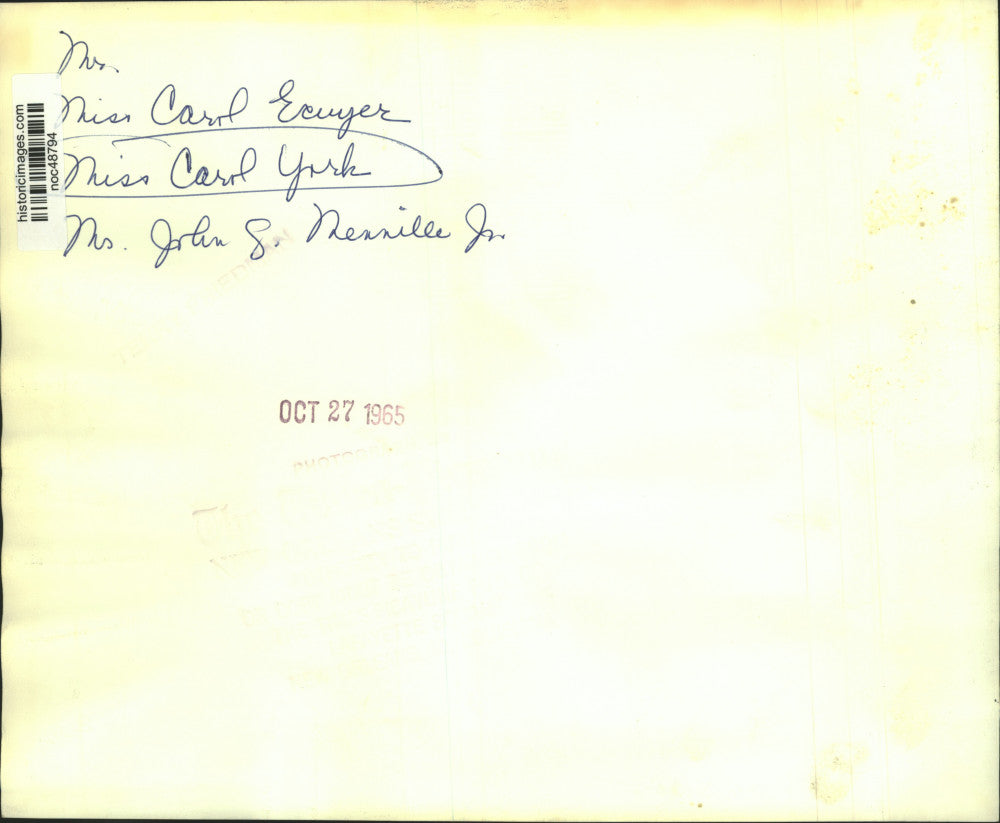 Mrs.
Miss Carol Ecuyer
Miss Carol York
Mrs. John G. Menville Jr.
historicimages.com
noc48794
OCT 27 1965